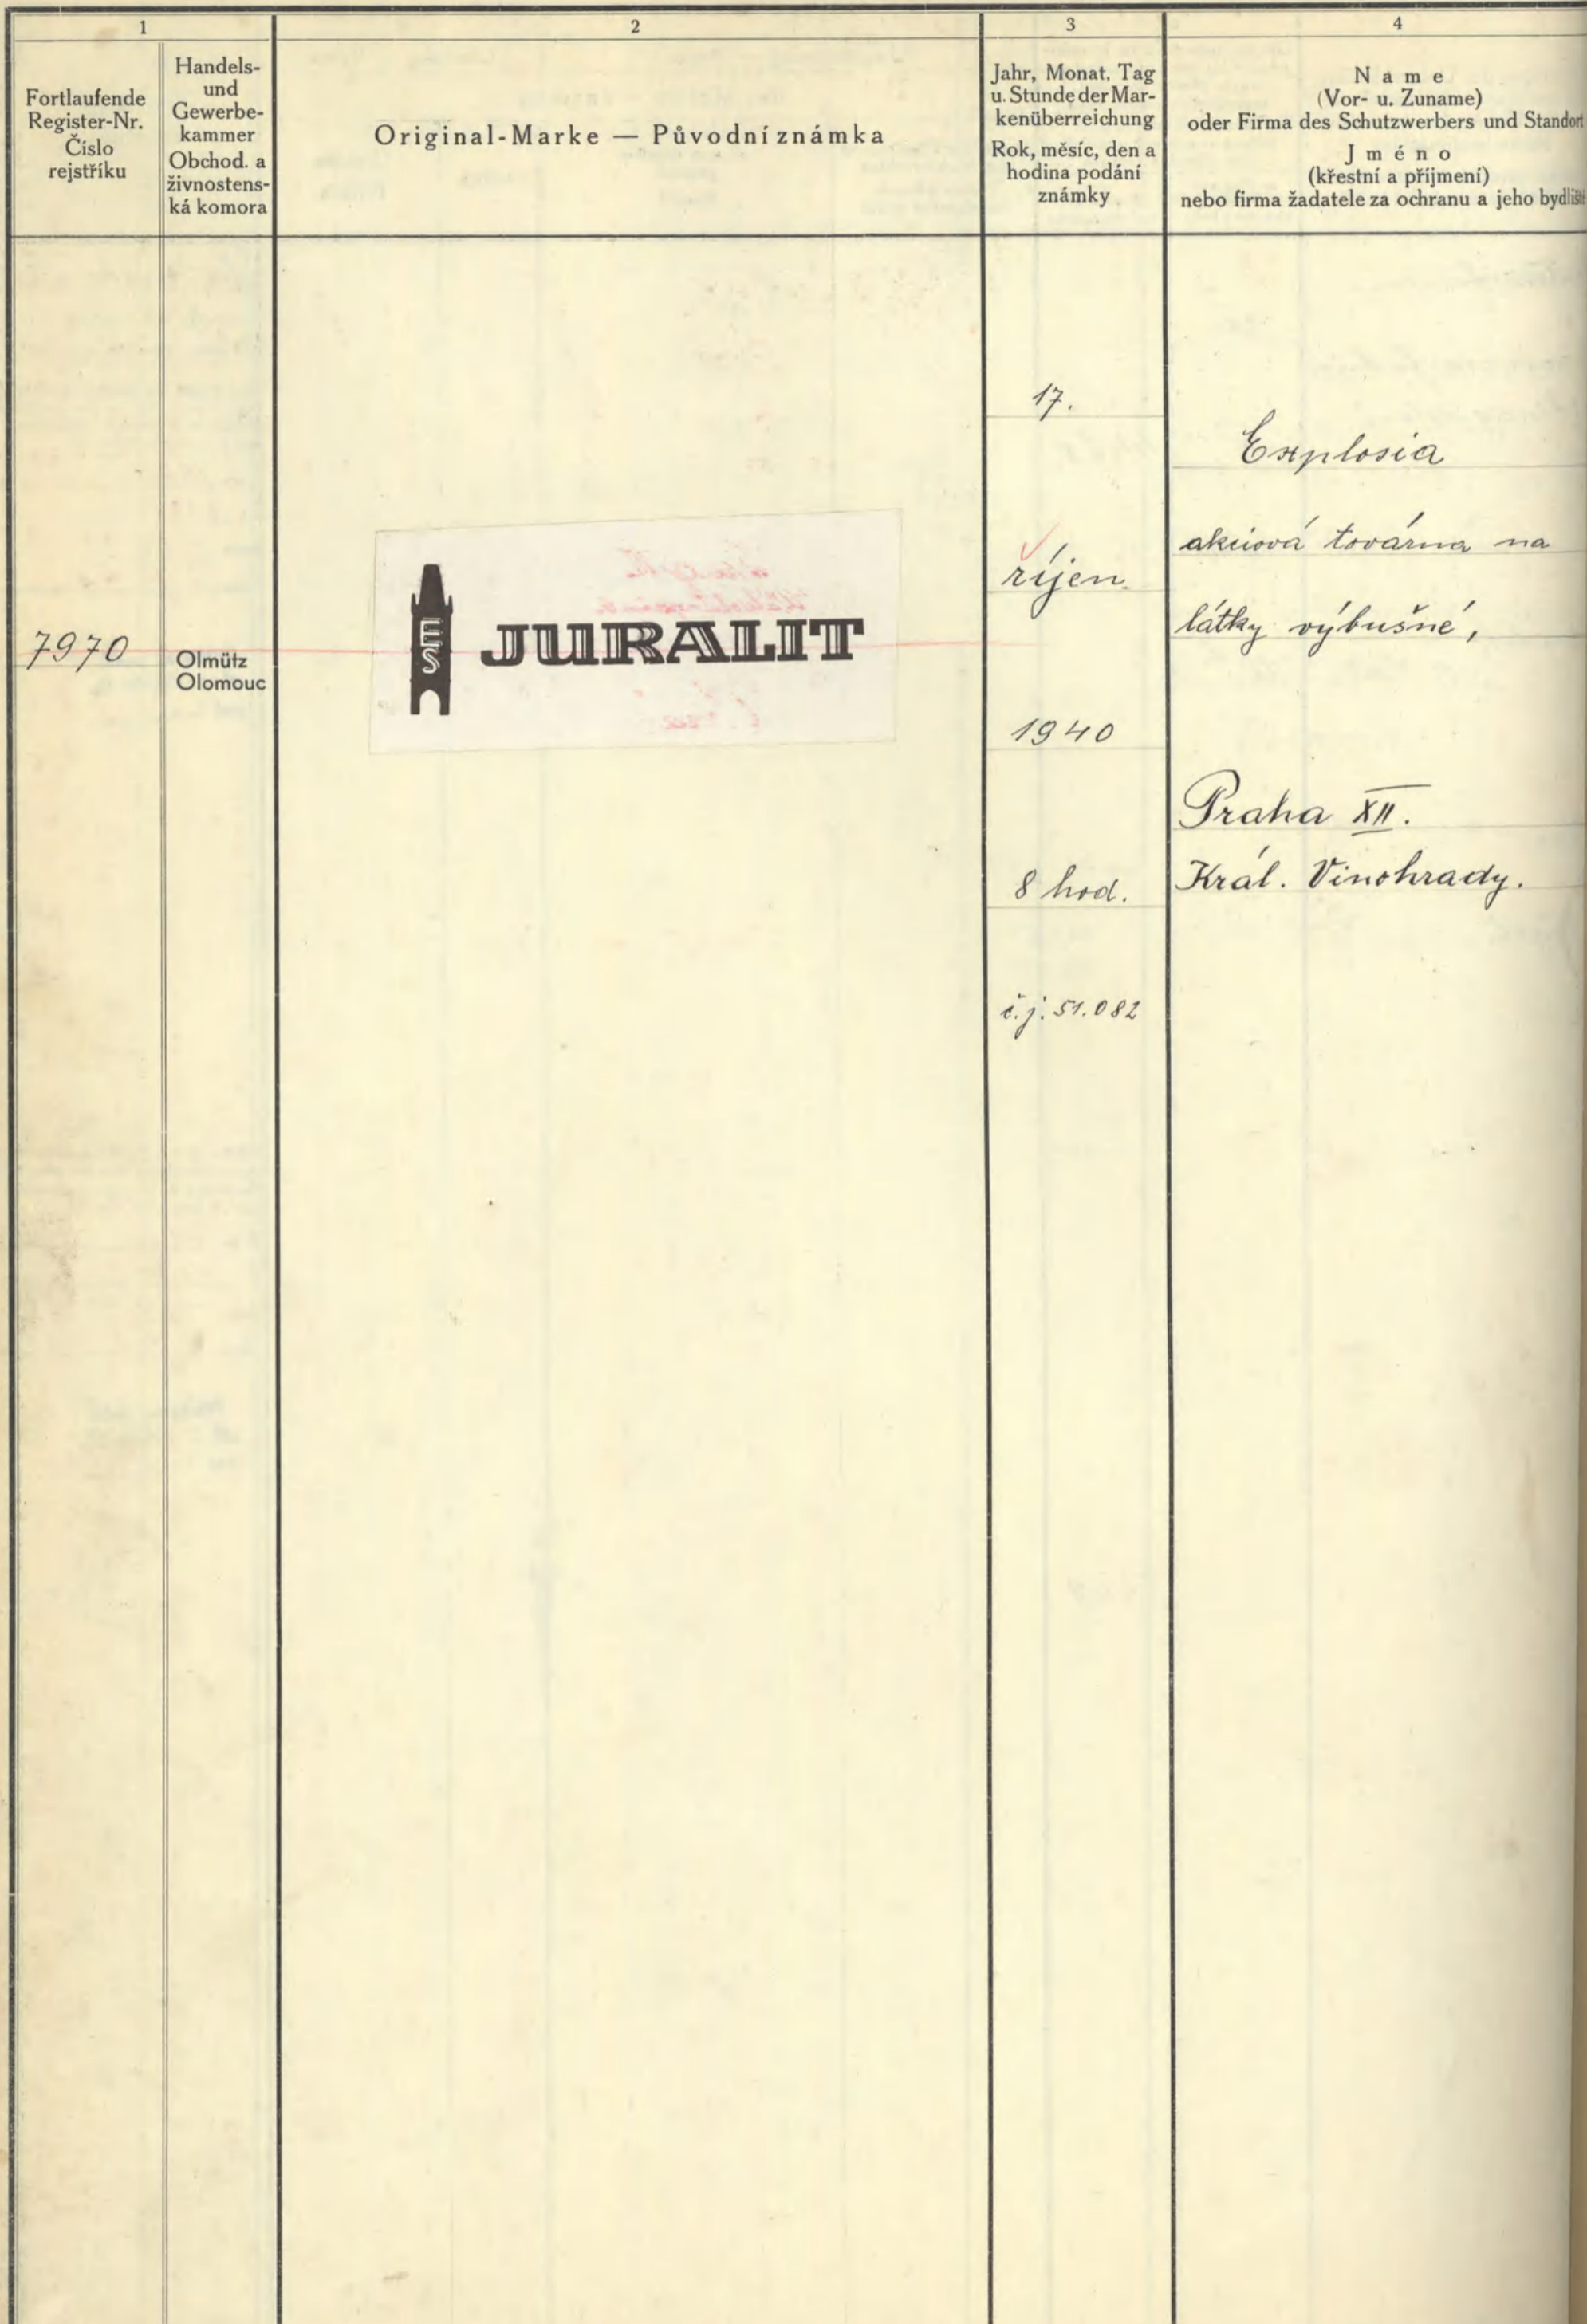 1
2
3
4
Fortlaufende
Register-Nr.
Číslo
rejstříku
Handels-
und
Gewerbe-
kammer
Obchod. a
živnostens-
ká komora
Original-Marke — Původní známka
Jahr, Monat, Tag
u. Stunde der Mar-
kenüberreichung
Rok, měsíc, den a
hodina podání
známky
Name
(Vor- u. Zuname)
oder Firma des Schutzwerbers und Standort
Jméno
(křestní a příjmení)
nebo firma žadatele za ochranu a jeho bydliště
7970
Olmütz
Olomouc
JURALIT
17.
říjen
1940
8 hod.
č.j. 51.082
Explosia
akciová továrna na
látky výbušné,
Praha XII.
Král. Vinohrady.